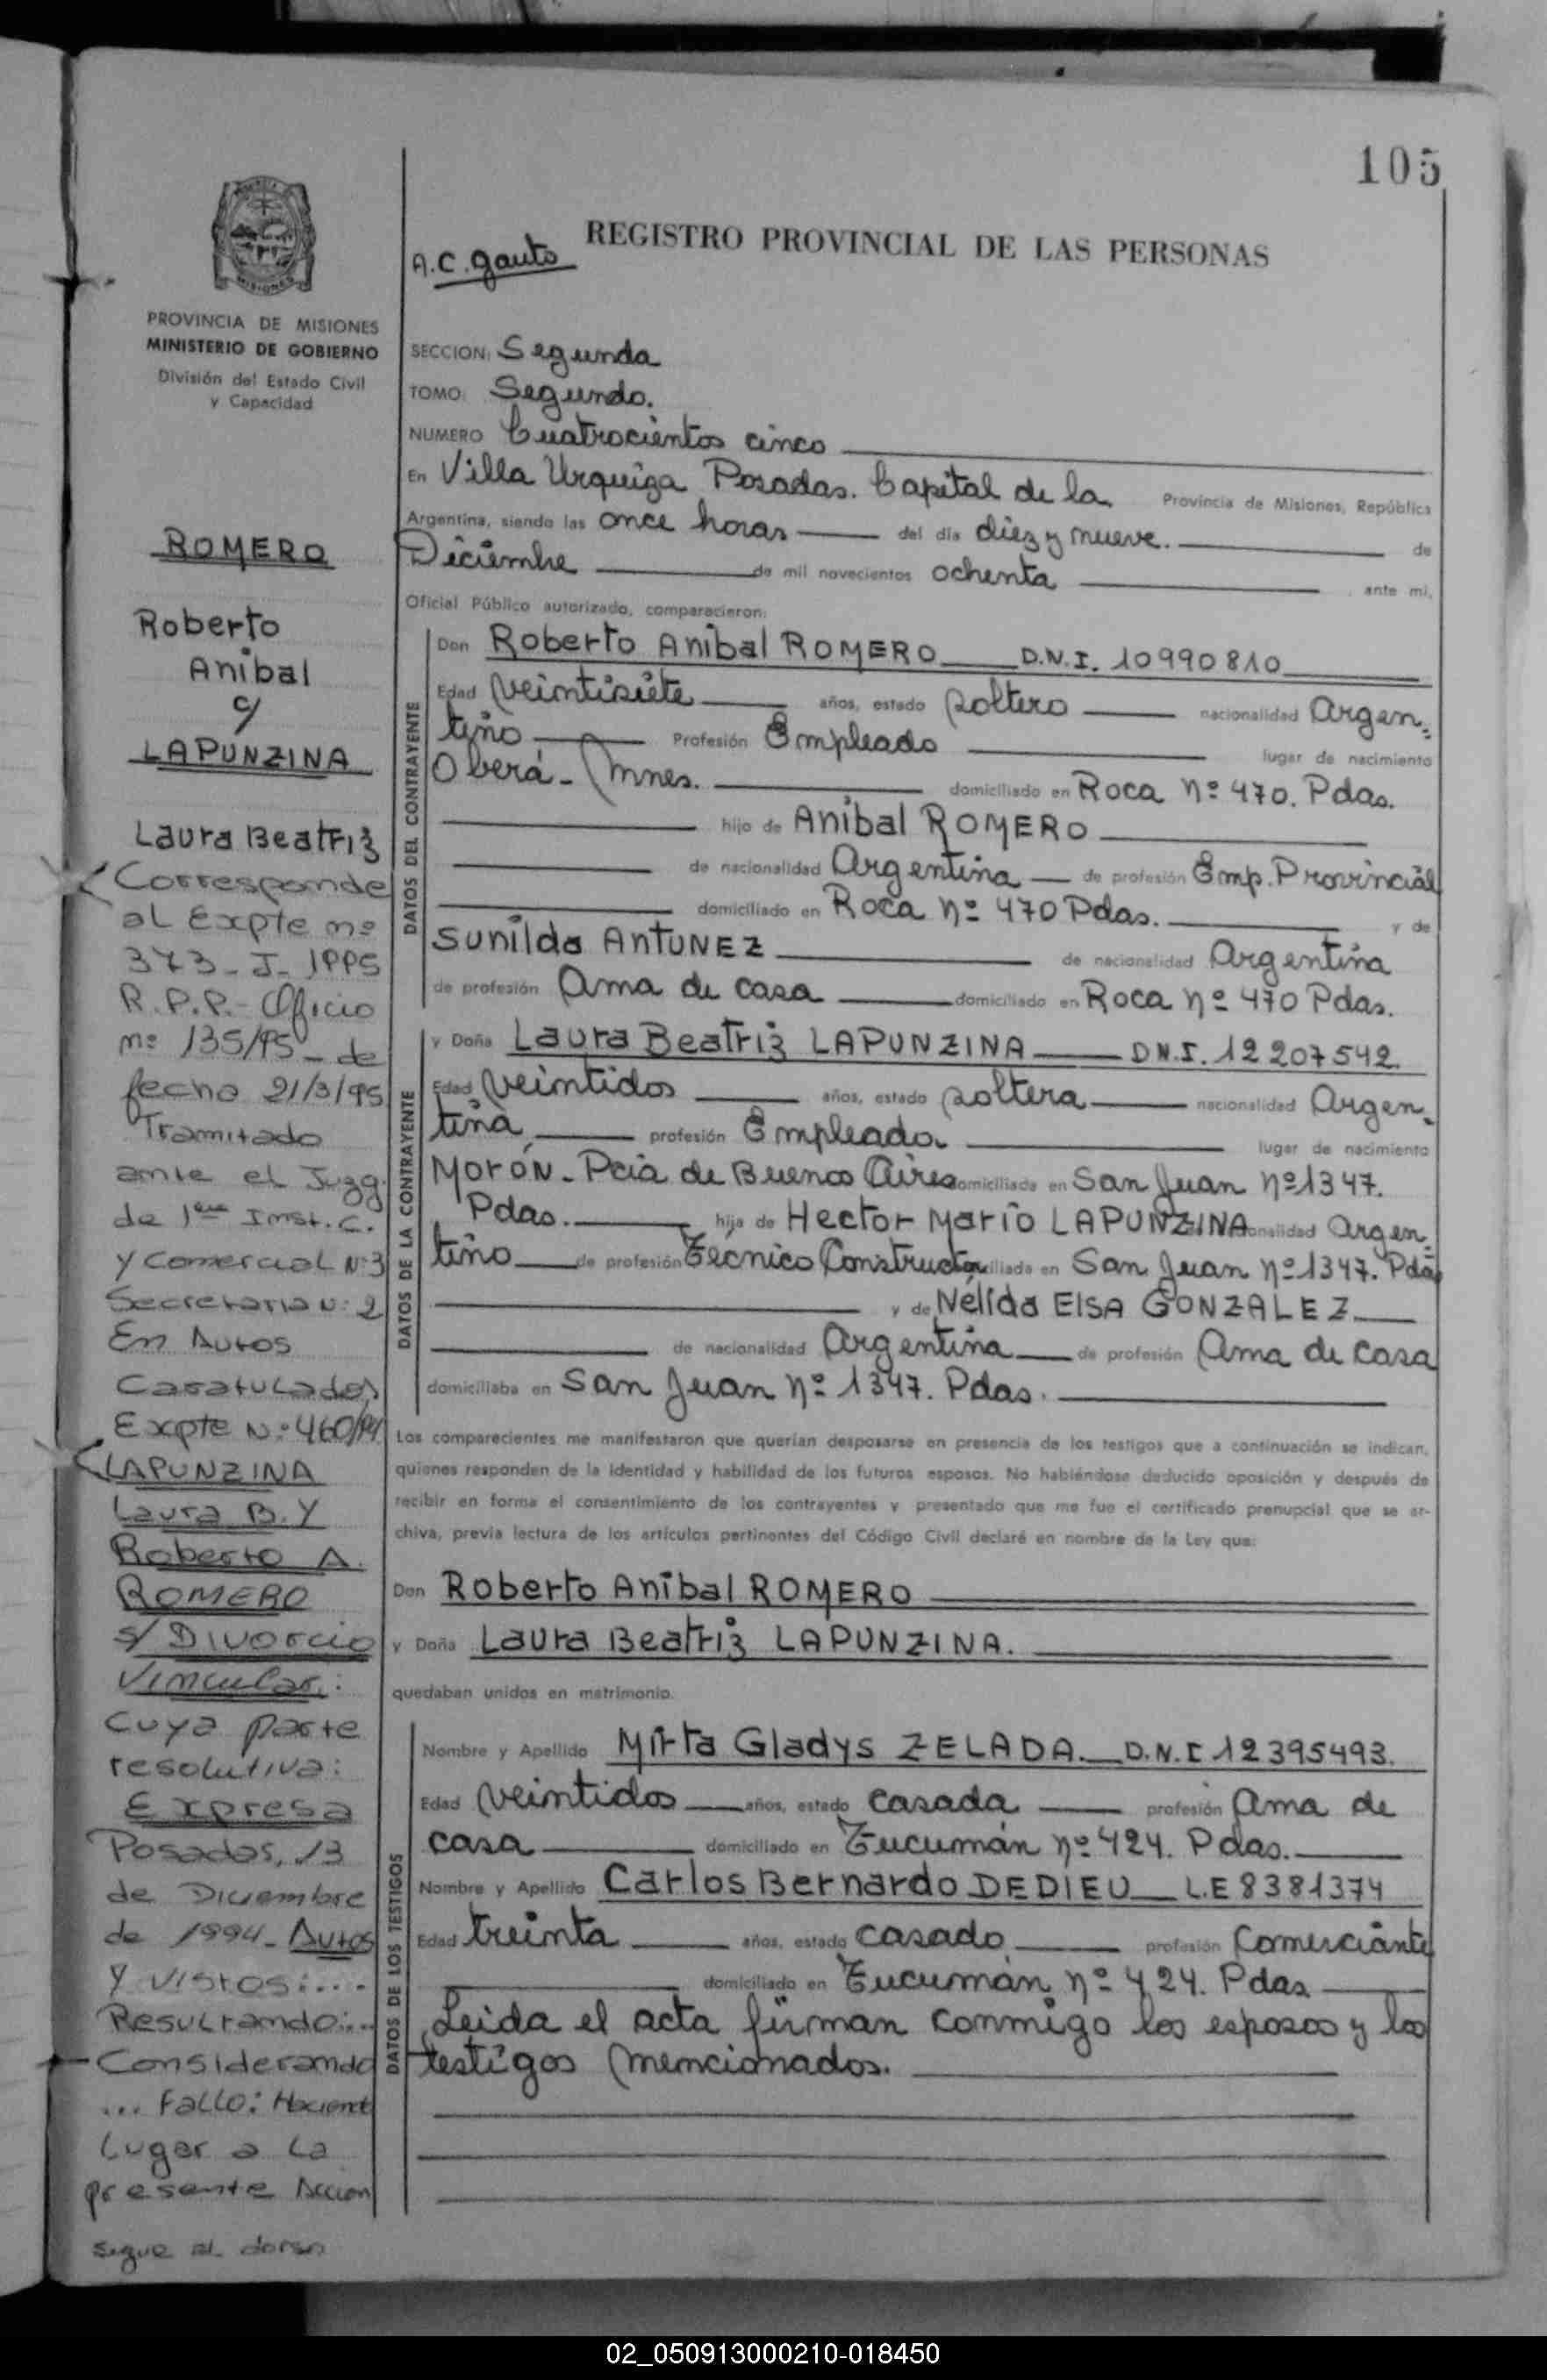 105
REGISTRO PROVINCIAL DE LAS PERSONAS
A.C. Gauto
PROVINCIA DE MISIONES
MINISTERIO DE GOBIERNO
División del Estado Civil
y Capacidad
ROMERO
Roberto
Anibal
c/
LAPUNZINA
Laura Beatriz
Corresponde
al Expte nº
373-J-1995
R.P.P.- Oficio
nº 135/95 - de
fecha 21/3/95
Tramitado
ante el Juzg.
de 1era Inst. C.
y Comercial Nº3
Secretaria Nº 2
En Autos
Caratulados
Expte Nº 460/94
LAPUNZINA
Laura B. Y
Roberto A.
ROMERO
s/ Divorcio
Vincular:
Cuya parte
resolutiva:
Expresa
Posadas, 13
de Diciembre
de 1994- Autos
y vistos:....
Resultando:...
Considerando
... Fallo: Haciend
Lugar a La
presente Accion
sigue al dorso
SECCION: Segunda
TOMO: Segundo.
NUMERO Cuatrocientos cinco
En Villa Urquiza Posadas. Capital de la Provincia de Misiones, República
Argentina, siendo las once horas del día diez y nueve. de
Diciembre de mil novecientos ochenta ante mi,
Oficial Público autorizado, comparecieron:
DATOS DEL CONTRAYENTE
Don Roberto Anibal ROMERO D.N.I. 10990810
Edad veintisiete años, estado soltero nacionalidad Argen-
tino Profesión Empleado lugar de nacimiento
Oberá - Mnes. domiciliado en Roca nº 470. Pdas.
hijo de Anibal ROMERO
de nacionalidad Argentina de profesión Emp. Provincial
domiciliado en Roca nº 470 Pdas. y de
Sunilda ANTUNEZ de nacionalidad Argentina
de profesión Ama de casa domiciliado en Roca nº 470 Pdas.
DATOS DE LA CONTRAYENTE
y Doña Laura Beatriz LAPUNZINA D.N.I. 12207542
Edad veintidos años, estado soltera nacionalidad Argen-
tina profesión Empleada lugar de nacimiento
Morón - Pcia de Buenos Aires domiciliada en San Juan nº 1347.
Pdas. hija de Hector Mario LAPUNZINA nacionalidad Argen-
tino de profesión Técnico Constructor domiciliada en San Juan nº 1347. Pdas
y de Nélida Elsa GONZALEZ
de nacionalidad Argentina de profesión Ama de casa
domiciliaba en San Juan nº 1347. Pdas.
Los comparecientes me manifestaron que querían desposarse en presencia de los testigos que a continuación se indican,
quienes responden de la identidad y habilidad de los futuros esposos. No habiéndose deducido oposición y después de
recibir en forma el consentimiento de los contrayentes y presentado que me fue el certificado prenupcial que se ar-
chiva, previa lectura de los artículos pertinentes del Código Civil declaré en nombre de la Ley que:
Don Roberto Anibal ROMERO
y Doña Laura Beatriz LAPUNZINA.
quedaban unidos en matrimonio.
DATOS DE LOS TESTIGOS
Nombre y Apellido Mirta Gladys ZELADA. D.N.I 12395493.
Edad veintidos años, estado casada profesión Ama de
casa domiciliado en Tucumán nº 424. Pdas.
Nombre y Apellido Carlos Bernardo DEDIEU L.E 8381374
Edad treinta años, estado casado profesión Comerciante
domiciliado en Tucumán nº 424. Pdas
Leida el acta firman conmigo los esposos y los
testigos mencionados.
02_050913000210-018450